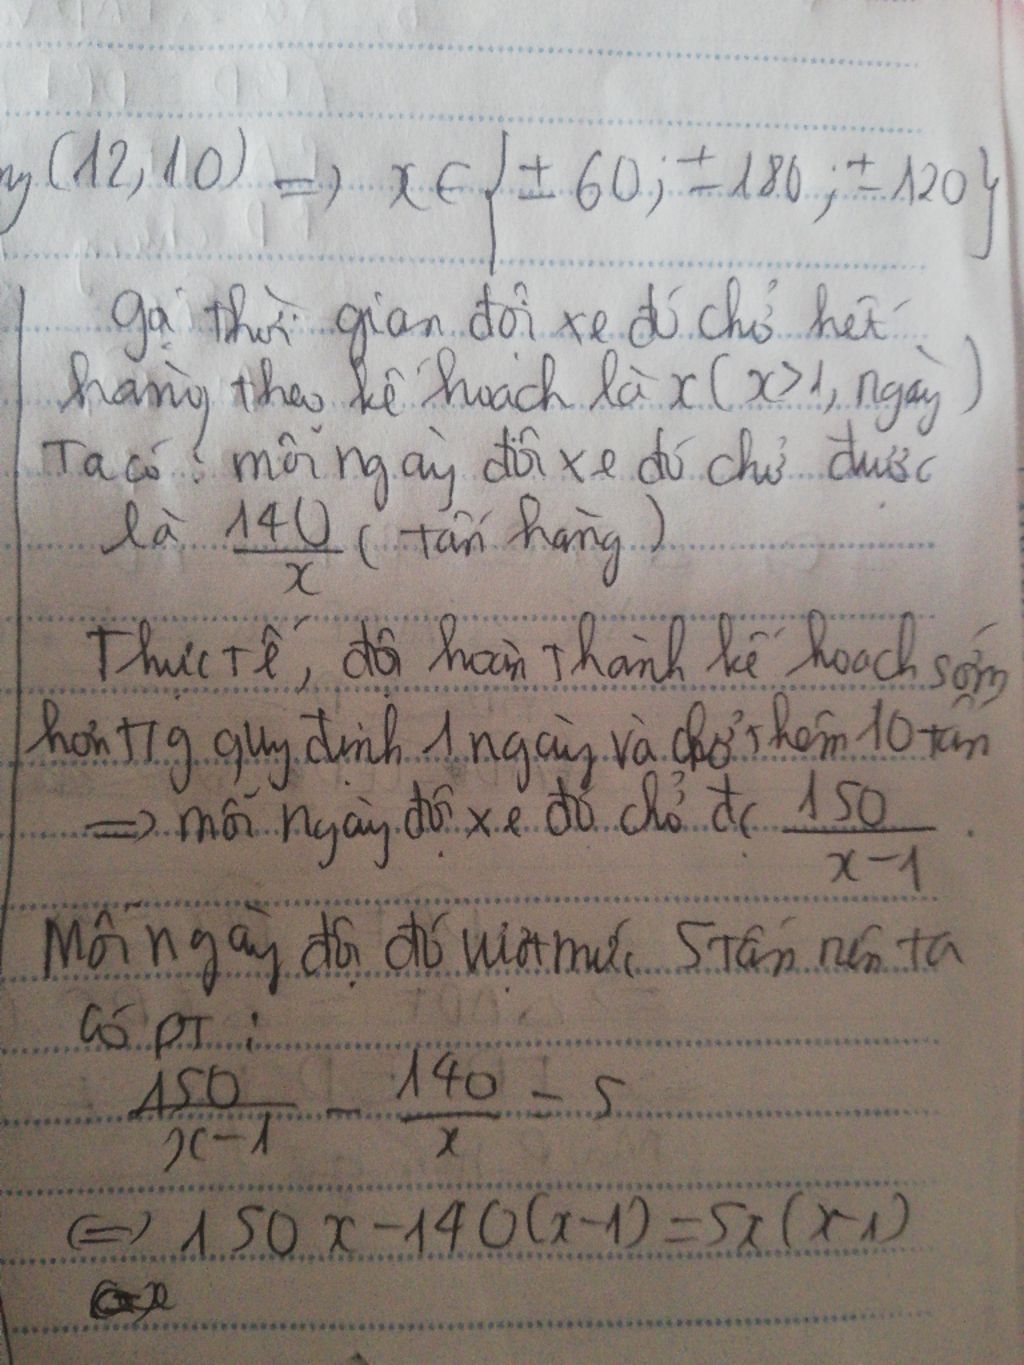 (12, 10) => x ∈ {± 60; ± 180; ± 120}
Gọi thời gian đội xe đó chở hết
hàng theo kế hoạch là x (x>1, ngày)
Ta có: mỗi ngày đội xe đó chở được
là 140/x (tấn hàng)
Thực tế, đội hoàn thành kế hoạch sớm
hơn tg quy định 1 ngày và chở thêm 10 tấn
=> mỗi ngày đội xe đó chở đc 150/(x-1).
Mỗi ngày đội đó vượt mức 5 tấn nên ta
có PT:
150/(x-1) - 140/x = 5
<=> 150x - 140(x-1) = 5x(x-1)